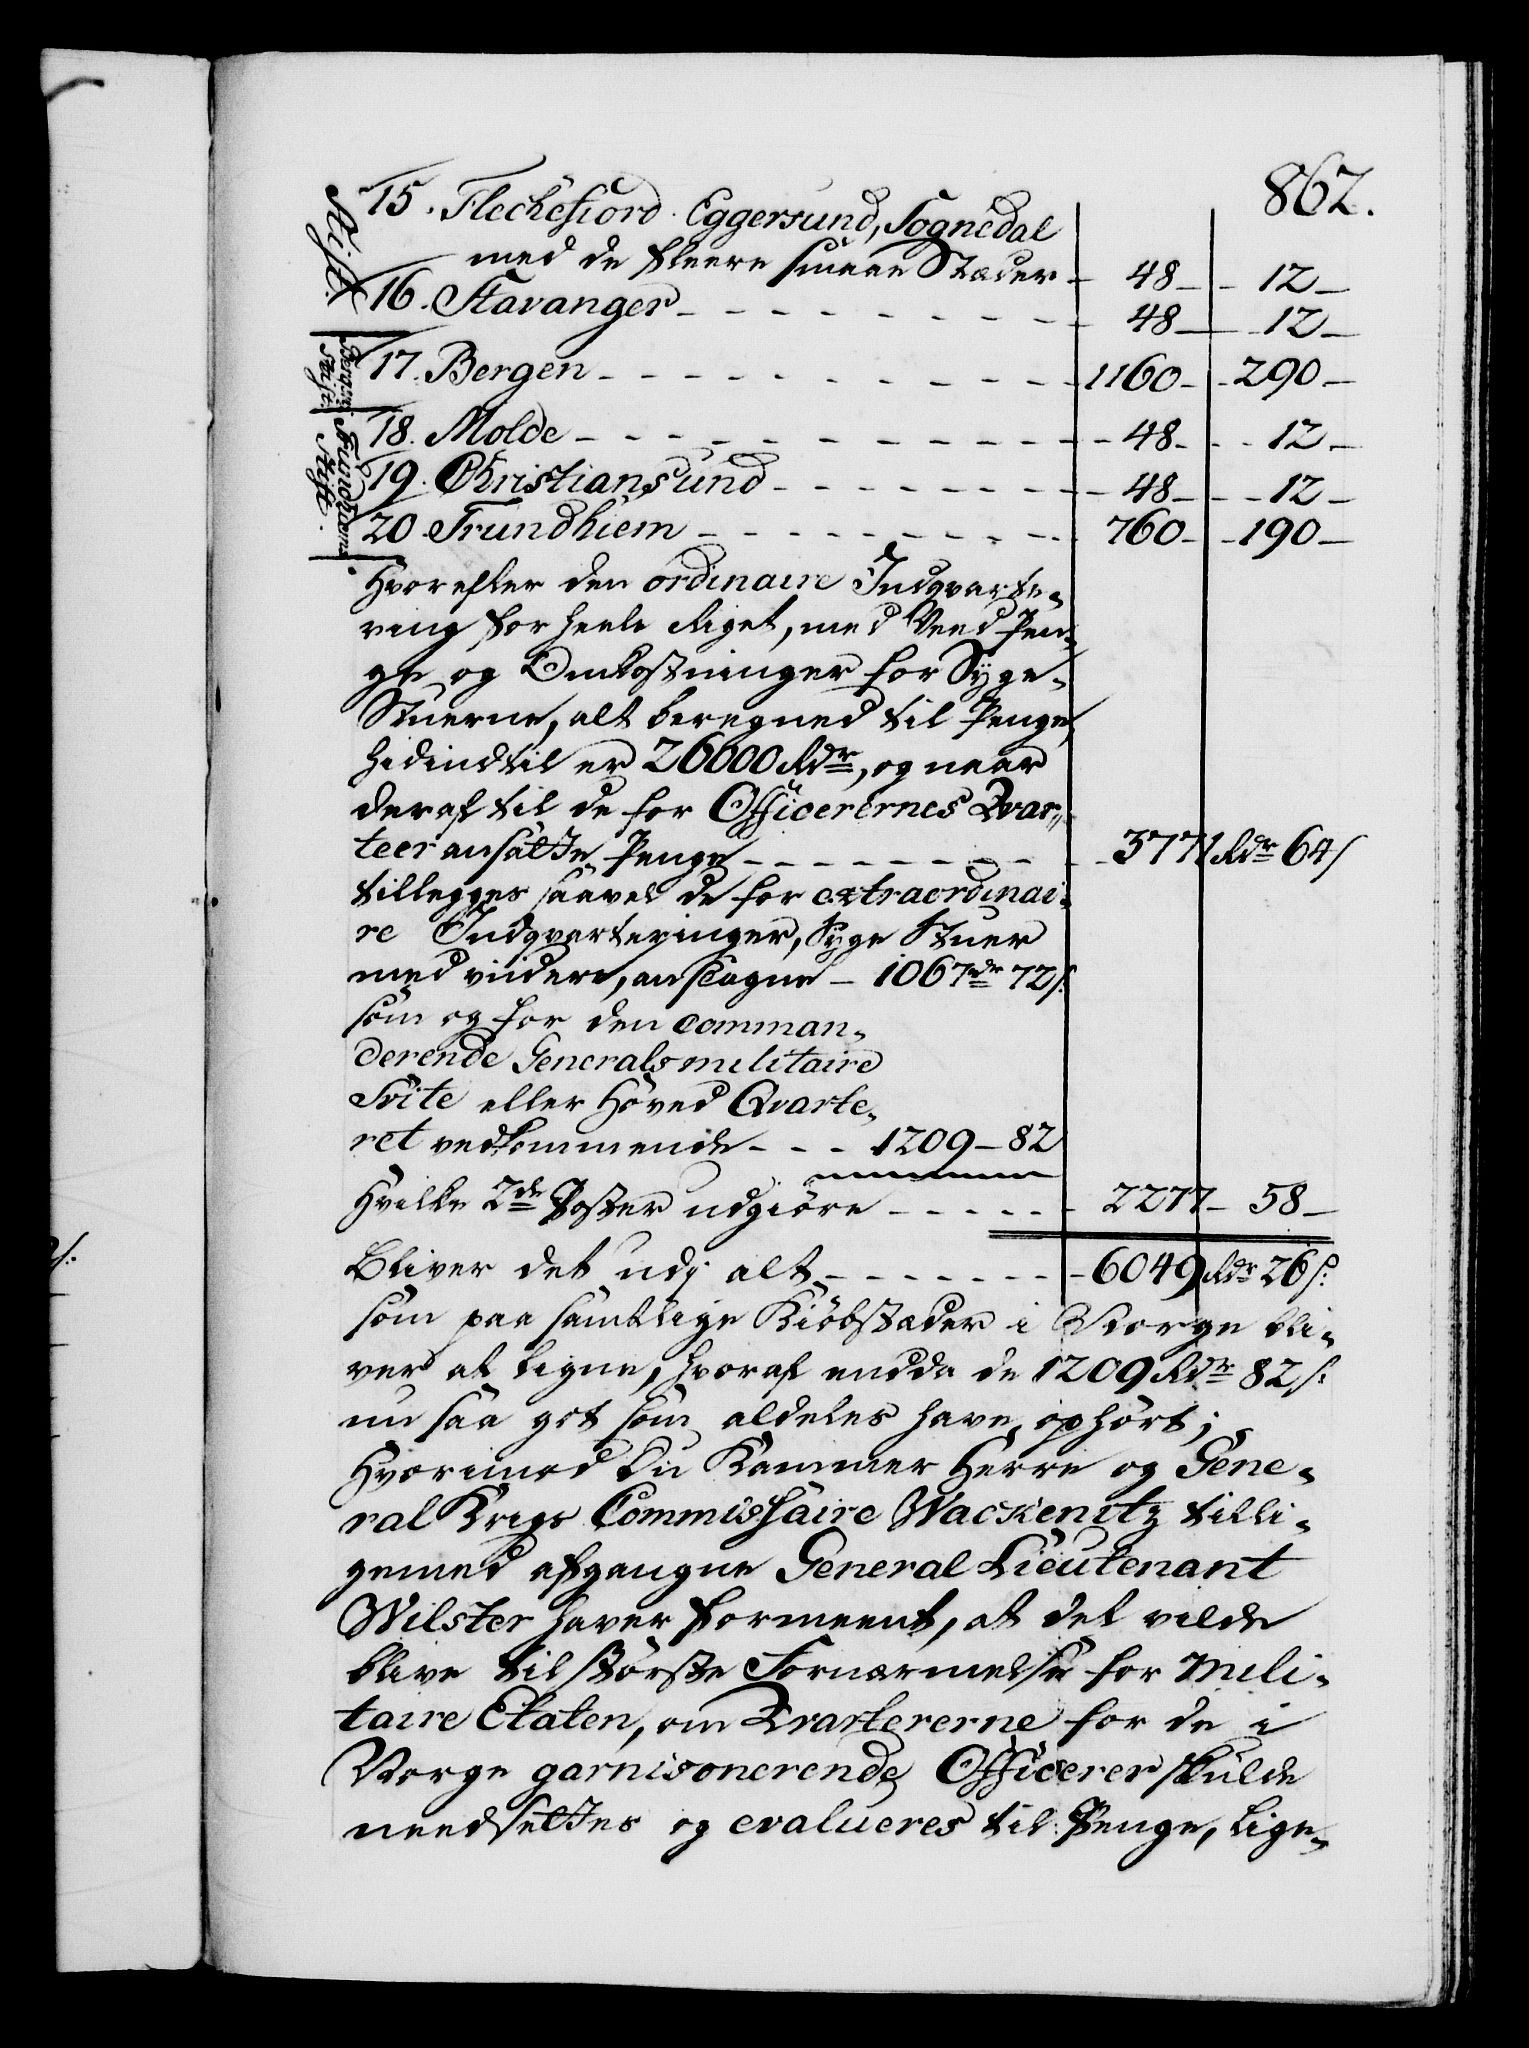 862.
Stift.
15. Fleckefiord. Eggersund, Sognedal
med de fleere smaae Stæder - 48 - 12 -
16. Stavanger - 48 - 12 -
Bergens Stift.
17. Bergen - 1160 - 290 -
Trundhiems Stift.
18. Molde - 48 - 12 -
19. Christiansund - 48 - 12 -
20. Trundhiem - 760 - 190 -
Hvorefter den ordinaire Indqvarte-
ring for heele Riget, med Veed Pen-
ge og Omkostninger for Syge-
Stuerne, alt beregned til Penge,
hidindtil er 26000 Rdr, og naar
deraf til de for Officerernes Qvar-
teer ansatte Penge - 3771 Rdr 64 s
tillegges saavel de for extraordinai-
re Indqvarteringer, Syge Stuer
med viidere, anslagne - 1067 dr 72 s:
som og for den comman-
derende Generals militaire
Svite eller Hoved Qvarte-
ret vedkommende - - - 1209 - 82
Hvilke 2de Poster udgiöre - 2277 - 58 -
Bliver det udj alt - 6049 Rdr 26 s:
som paa samtlige Kiöbstæder i Norge bli-
ver at ligne, hvoraf endda de 1209 Rdr 82 s:
nu saa got som aldeles have ophört;
Hvorimod Du Kammer Herre og Gene-
ral Krigs Commissaire Wackenitz tilli-
gemed afgangne General Lieutenant
Wilster haver formeent, at det vilde
blive til störste Fornærmelse for Mili-
taire Etaten, om Qvartererne for de i
Norge garnisonerende Officerer skulde
needsettes og evalueres til Penge, lige-